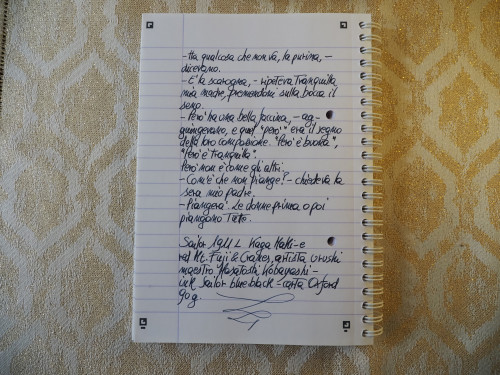 -Ha qualcosa che non va, la purina, -
dicevano.
- E' la scarogna, - ripeteva tranquilla
mia madre, premendomi sulla bocca il
seno.
- Però ha una bella faccina, - ag-
giungevano, e quel "però" era il segno
della loro compassione. "Però è buona",
"Però è tranquilla".
Però non è come gli altri.
- Com'è che non piange? - chiedeva la
sera mio padre.
- Piangerà. Le donne prima o poi
piangono tutte.
Sailor 1911 L Kaga Maki-e
red Mt. Fuji & Cranes, artista urushi
maestro Masatoshi Kobayashi -
ink Sailor blue black - carta Oxford
90 g.